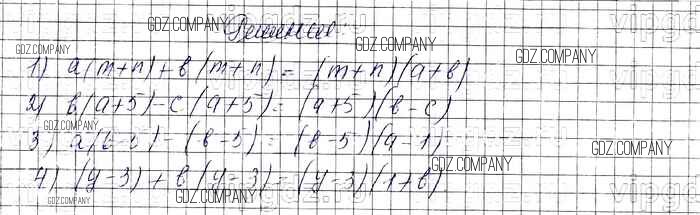 Решения
1) a(m+n)+в(m+n)=(m+n)(a+в)
2) в(a+5)-c(a+5)=(a+5)(в-c)
3) a(в-5)-(в-5)=(в-5)(a-1)
4) (y-3)+в(y-3)=(y-3)(1+в)
GDZ.COMPANY
GDZ.COMPANY
GDZ.COMPANY
GDZ.COMPANY
GDZ.COMPANY
GDZ.COMPANY
GDZ.COMPANY
GDZ.COMPANY
GDZ.COMPANY
GDZ.COMPANY